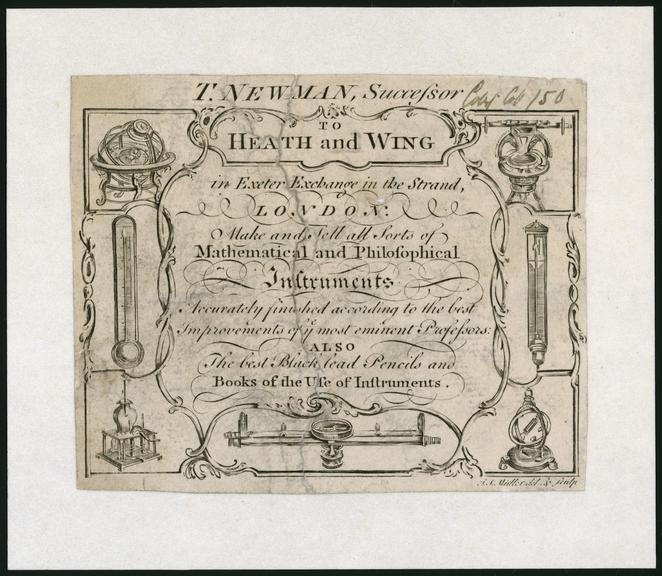 T. NEWMAN, Succeſsor
150
TO
HEATH and WING
in Exeter Exchange in the Strand,
LONDON:
Make and Sell all Sorts of
Mathematical and Philoſophical
Inſtruments
Accurately finished according to the best
Improvements of yᵉ most eminent Profeſsors:
ALSO
The best Black lead Pencils and
Books of the Uſe of Inſtruments.
Müller del. & sculp